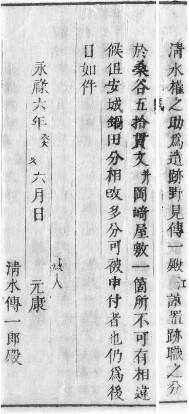 清水権之助為遺跡野見傳一殿江譲置跡職之分
於桑谷五拾貫文并岡﨑屋敷一箇所不可有相違
候但安城鍋田分相改多分可被申付者也仍為後
日如件
永禄六年癸亥六月日 元康
人
清水傳一郎殿